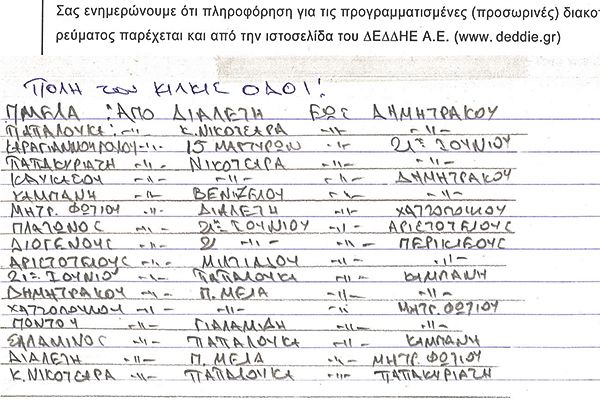 Σας ενημερώνουμε ότι πληροφόρηση για τις προγραμματισμένες (προσωρινές) διακο
ρεύματος παρέχεται και από την ιστοσελίδα του ΔΕΔΔΗΕ Α.Ε. (www. deddie.gr)
ΠΟΛΗ ΤΟΥ ΚΙΛΚΙΣ ΟΔΟΙ:
Π ΜΕΛΑ : ΑΠΟ ΔΙΑΛΕΤΗ ΕΩΣ ΔΗΜΗΤΡΑΚΟΥ
ΠΑΠΑΛΟΥΚΑ: -〃- Κ.ΝΙΚΟΤΣΑΡΑ -〃- -〃-
ΚΑΡΑΓΙΑΝΝΟΠΟΥΛΟΥ -〃- 15 ΜΑΡΤΥΡΩΝ -〃- 21ης ΙΟΥΝΙΟΥ
ΠΑΠΑΚΥΡΙΑΖΗ -〃- ΝΙΚΟΤΣΑΡΑ -〃- -〃-
ΚΑΥΚΑΣΟΥ -〃- -〃- -〃- ΔΗΜΗΤΡΑΚΟΥ
ΚΑΜΠΑΝΗ -〃- ΒΕΝΙΖΕΛΟΥ -〃- -〃-
ΜΗΤΡ. ΦΩΤΙΟΥ -〃- ΔΙΑΛΕΤΗ -〃- ΧΑΤΖΟΠΟΥΛΟΥ
ΠΛΑΤΩΝΟΣ -〃- 21ης ΙΟΥΝΙΟΥ -〃- ΑΡΙΣΤΟΤΕΛΟΥΣ
ΔΙΟΓΕΝΟΥΣ -〃- 21 -〃- -〃- ΠΕΡΙΚΛΕΟΥΣ
ΑΡΙΣΤΟΤΕΛΟΥΣ -〃- ΜΙΛΤΙΑΔΟΥ -〃- -〃-
21ης ΙΟΥΝΙΟΥ -〃- ΠΑΠΑΛΟΥΚΑ -〃- ΚΑΜΠΑΝΗ
ΔΗΜΗΤΡΑΚΟΥ -〃- Π. ΜΕΛΑ -〃- -〃-
ΧΑΤΖΟΠΟΥΛΟΥ -〃- -〃- -〃- ΜΗΤΡ. ΦΩΤΙΟΥ
ΠΟΝΤΟΥ -〃- ΓΙΑΛΑΜΙΔΗ -〃- -〃-
ΣΑΛΑΜΙΝΟΣ -〃- ΠΑΠΑΛΟΥΚΑ -〃- ΚΑΜΠΑΝΗ
ΔΙΑΛΕΤΗ -〃- Π. ΜΕΛΑ -〃- ΜΗΤΡ. ΦΩΤΙΟΥ
Κ. ΝΙΚΟΤΣΑΡΑ -〃- ΠΑΠΑΛΟΥΚΑ -〃- ΠΑΠΑΚΥΡΙΑΖΗ